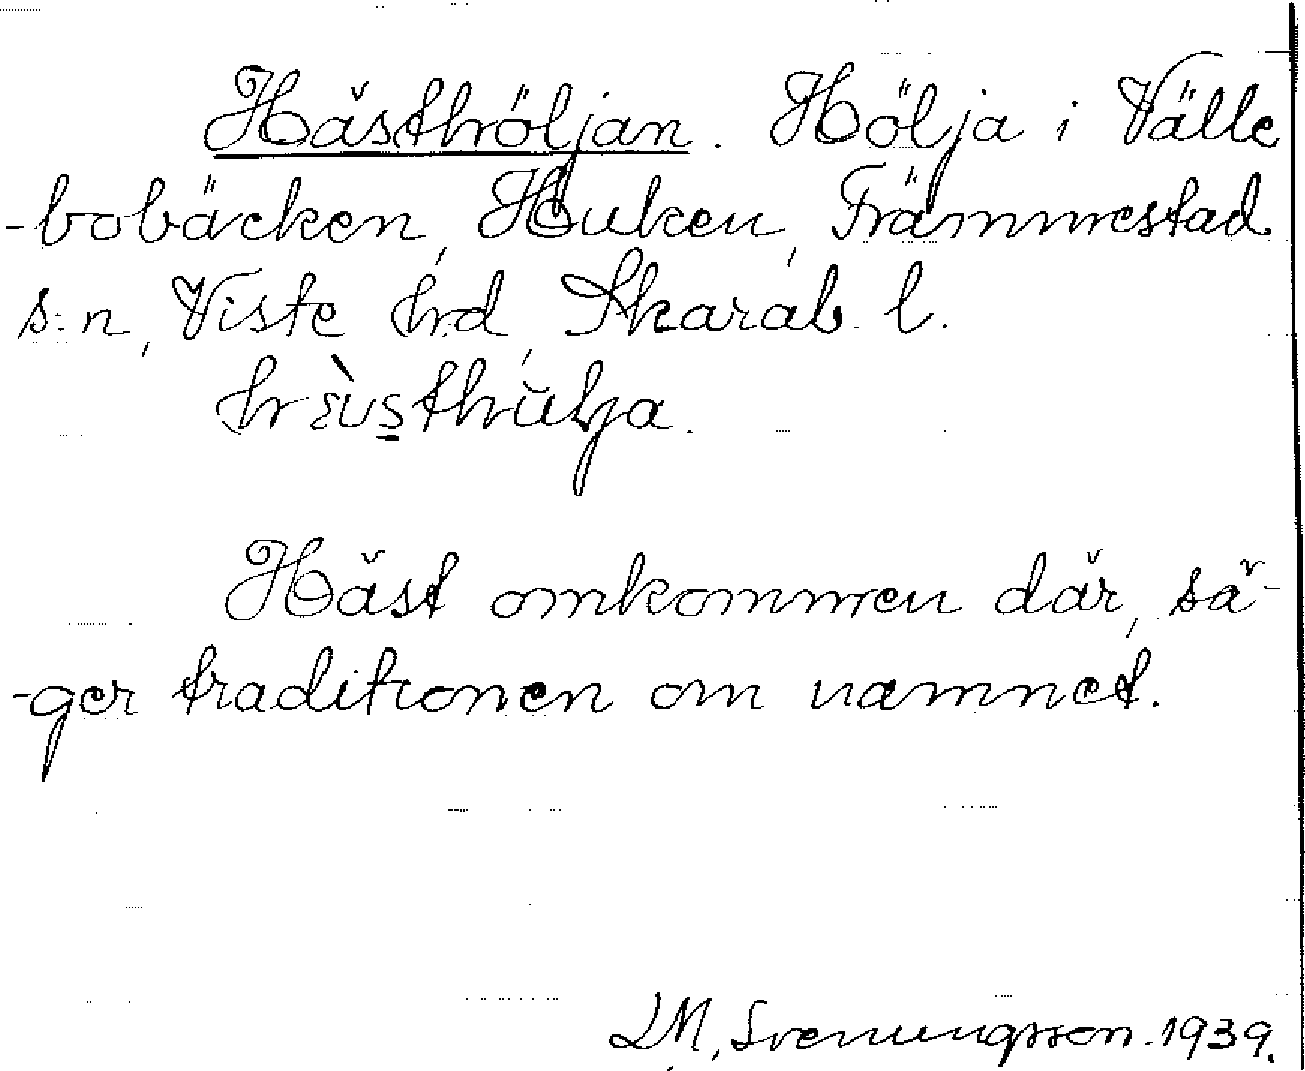 Hästhöljan. Hölja i Välle
-bobäcken, Huken, Främmestad
s:n, Viste hd, Skarab. l.
Häst omkommen där, sä-
-ger traditionen om namnet.
L M, Svenungsson. 1939.